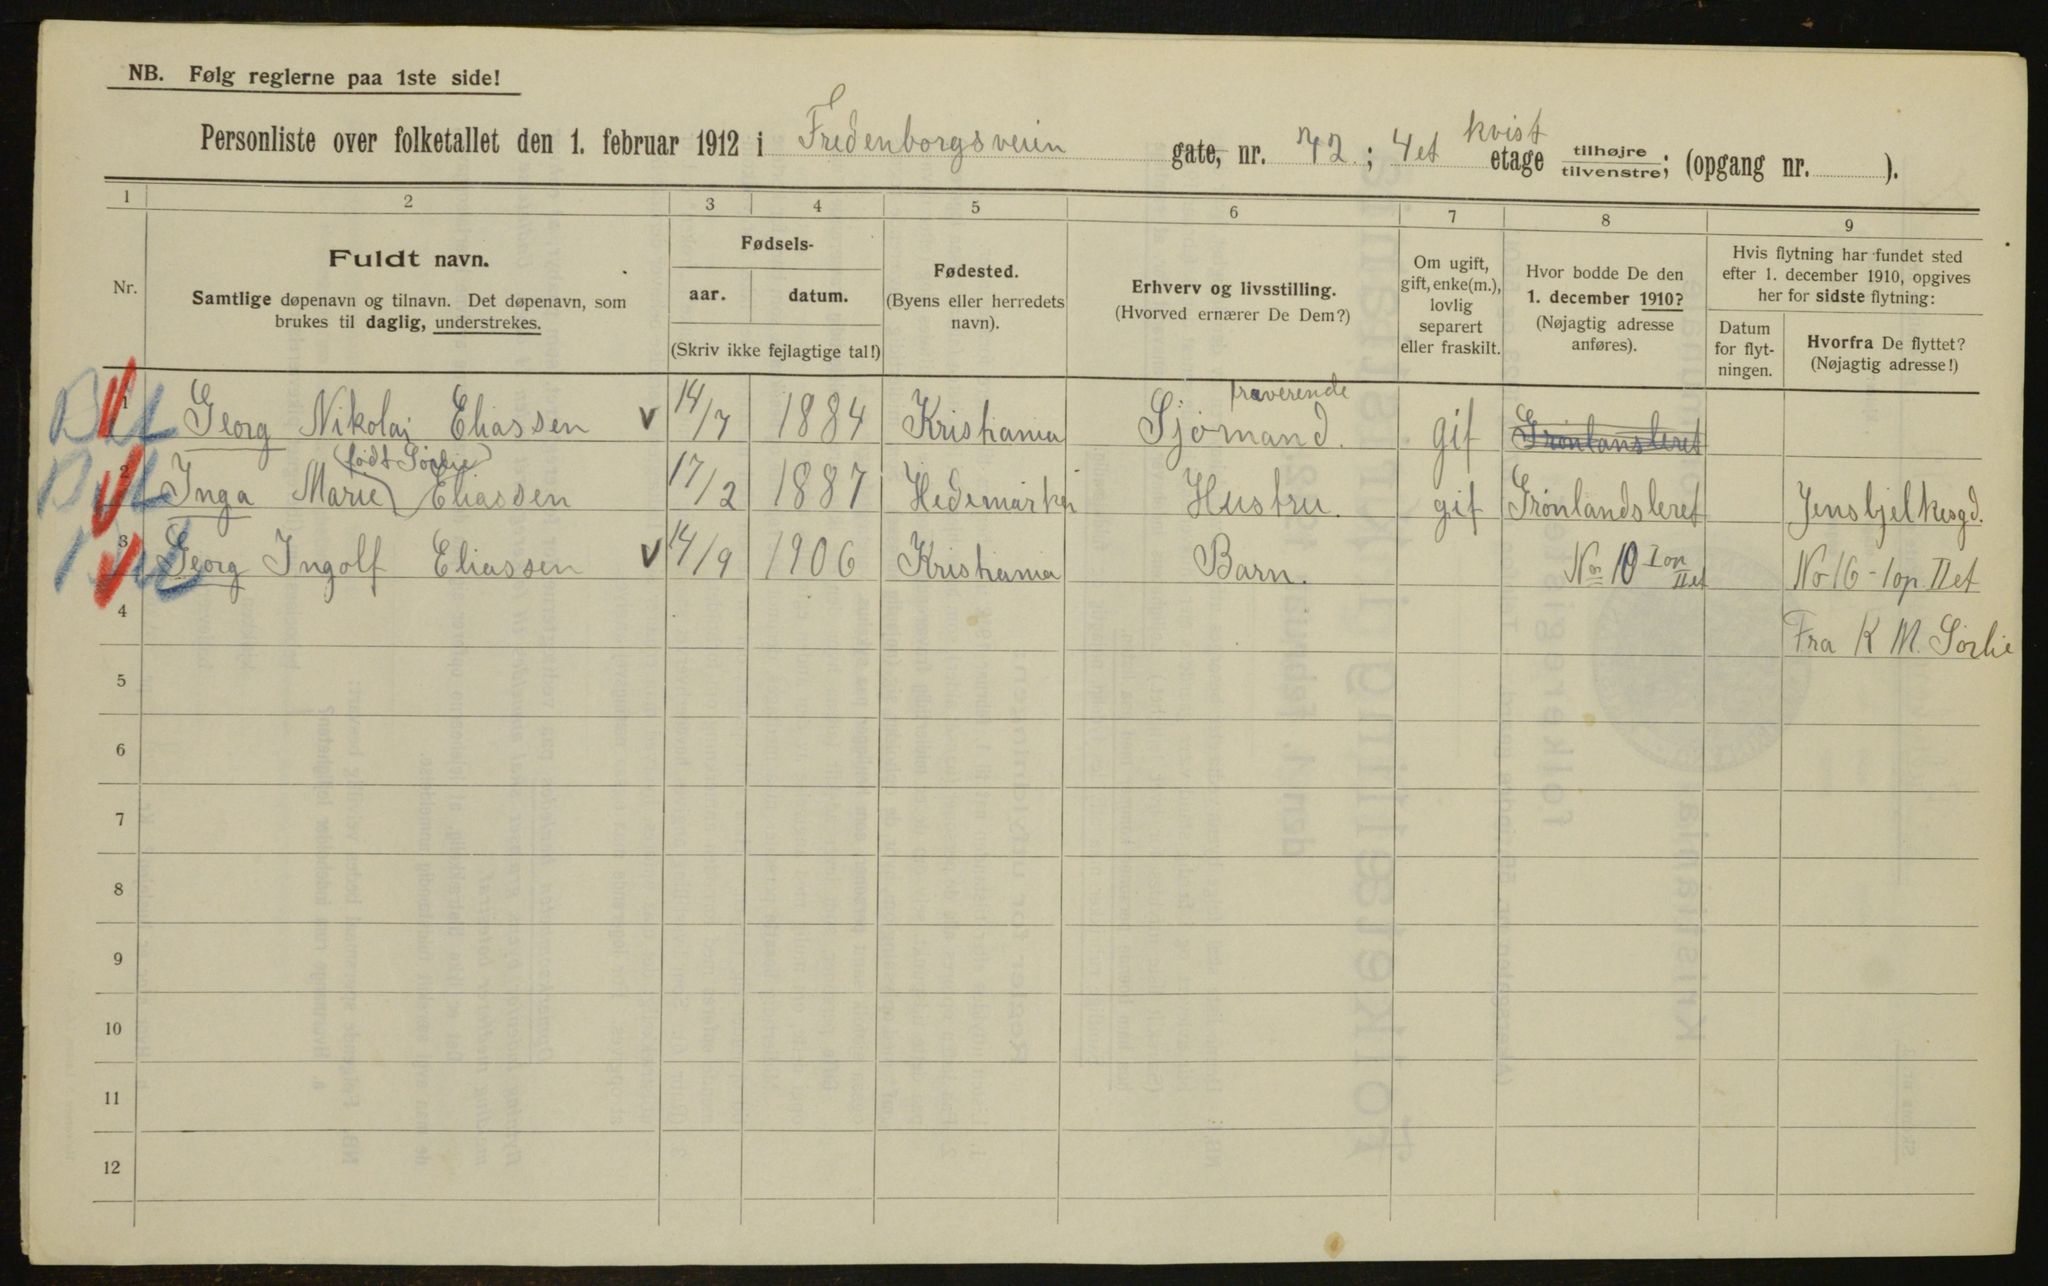 NB. Følg reglerne paa 1ste side!
Personliste over folketallet den 1. februar 1912 i Fredenborgsveien gate, nr. 42; 4et kvist etage tilhøjre tilvenstre; (opgang nr. ).
1 2 3 4 5 6 7 8 9
Nr.
Fuldt navn.
Samtlige døpenavn og tilnavn. Det døpenavn, som
brukes til daglig, understrekes.
Fødsels-
aar. datum.
(Skriv ikke fejlagtige tal!)
Fødested.
(Byens eller herredets
navn).
Erhverv og livsstilling.
(Hvorved ernærer De Dem?)
Om ugift,
gift, enke(m.),
lovlig
separert
eller fraskilt.
Hvor bodde De den
1. december 1910?
(Nøjagtig adresse
anføres).
Hvis flytning har fundet sted
efter 1. december 1910, opgives
her for sidste flytning:
Datum
for flyt-
ningen.
Hvorfra De flyttet?
(Nøjagtig adresse!)
fraverende
1 Georg Nikolai Eliassen v 14/7 1884 Kristiania Sjømand. gif Grønlansleret
(født Sørlie)
2 Inga Marie Eliassen 17/2 1887 Hedemarken Hustru. gif Grønlandsleret Jensbjelkesgd.
3 Georg Ingolf Eliassen v 14/9 1906 Kristiania Barn. No 10 I op II et No 16 - 1 op II et
4 Fra K M. Sørlie
5
6
7
8
9
10
11
12